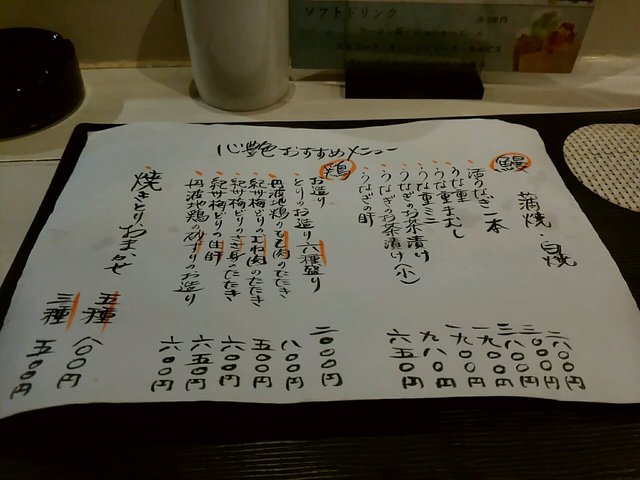 ソフトドリンク
心艶おすすめメニュー
鰻
蒲焼・白焼
活うなぎ一本
うな重
うな重ミニ
うなぎのお茶漬け
うなぎのお茶漬け(小)
うなぎの肝
鶏
お造り
とりのお造り六種盛り
丹波地鶏のもも肉のたたき
紀州梅どりのむね肉のたたき
紀州梅どりのささ身のたたき
紀州梅どりの生肝
丹波地鶏の砂ずりのお造り
焼きとりおまかせ
五種 八〇〇円
三種 五〇〇円
二六〇〇円
三〇〇〇円
三八〇〇円
一九〇〇円
一九〇〇円
九八〇円
六五〇円
二〇〇〇円
八〇〇円
五〇〇円
六〇〇円
六五〇円
六〇〇円